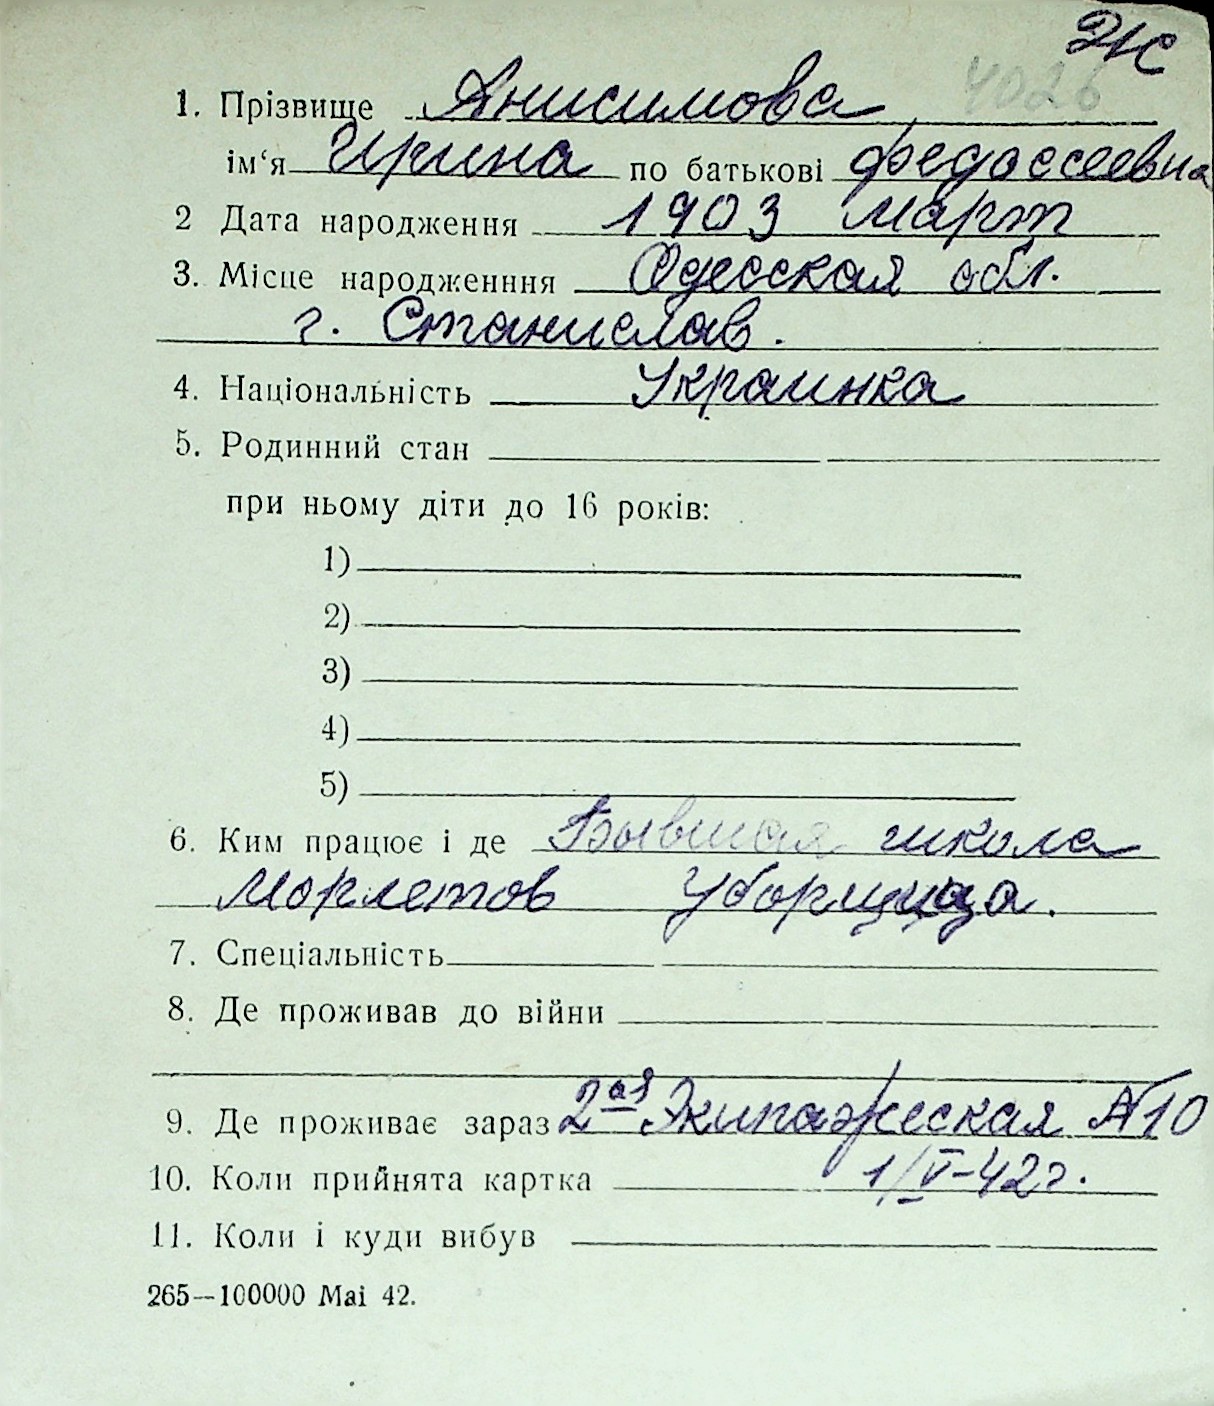 Ж
4026
1. Прізвище Анисимова
ім‘я Ирина по батькові Федоссеевна
2 Дата народження 1903 март
3. Місце народженння Одесская обл.
г. Станислав.
4. Національність Украинка
5. Родинний стан
при ньому діти до 16 років:
1)
2)
3)
4)
5)
6. Ким працює і де Бывшая школа
Морлетов Уборщица.
7. Спеціальність
8. Де проживав до війни
9. Де проживає зараз 2ая Экипажеская №10
10. Коли прийнята картка 1/V-42г.
11. Коли і куди вибув
265—100000 Mai 42.